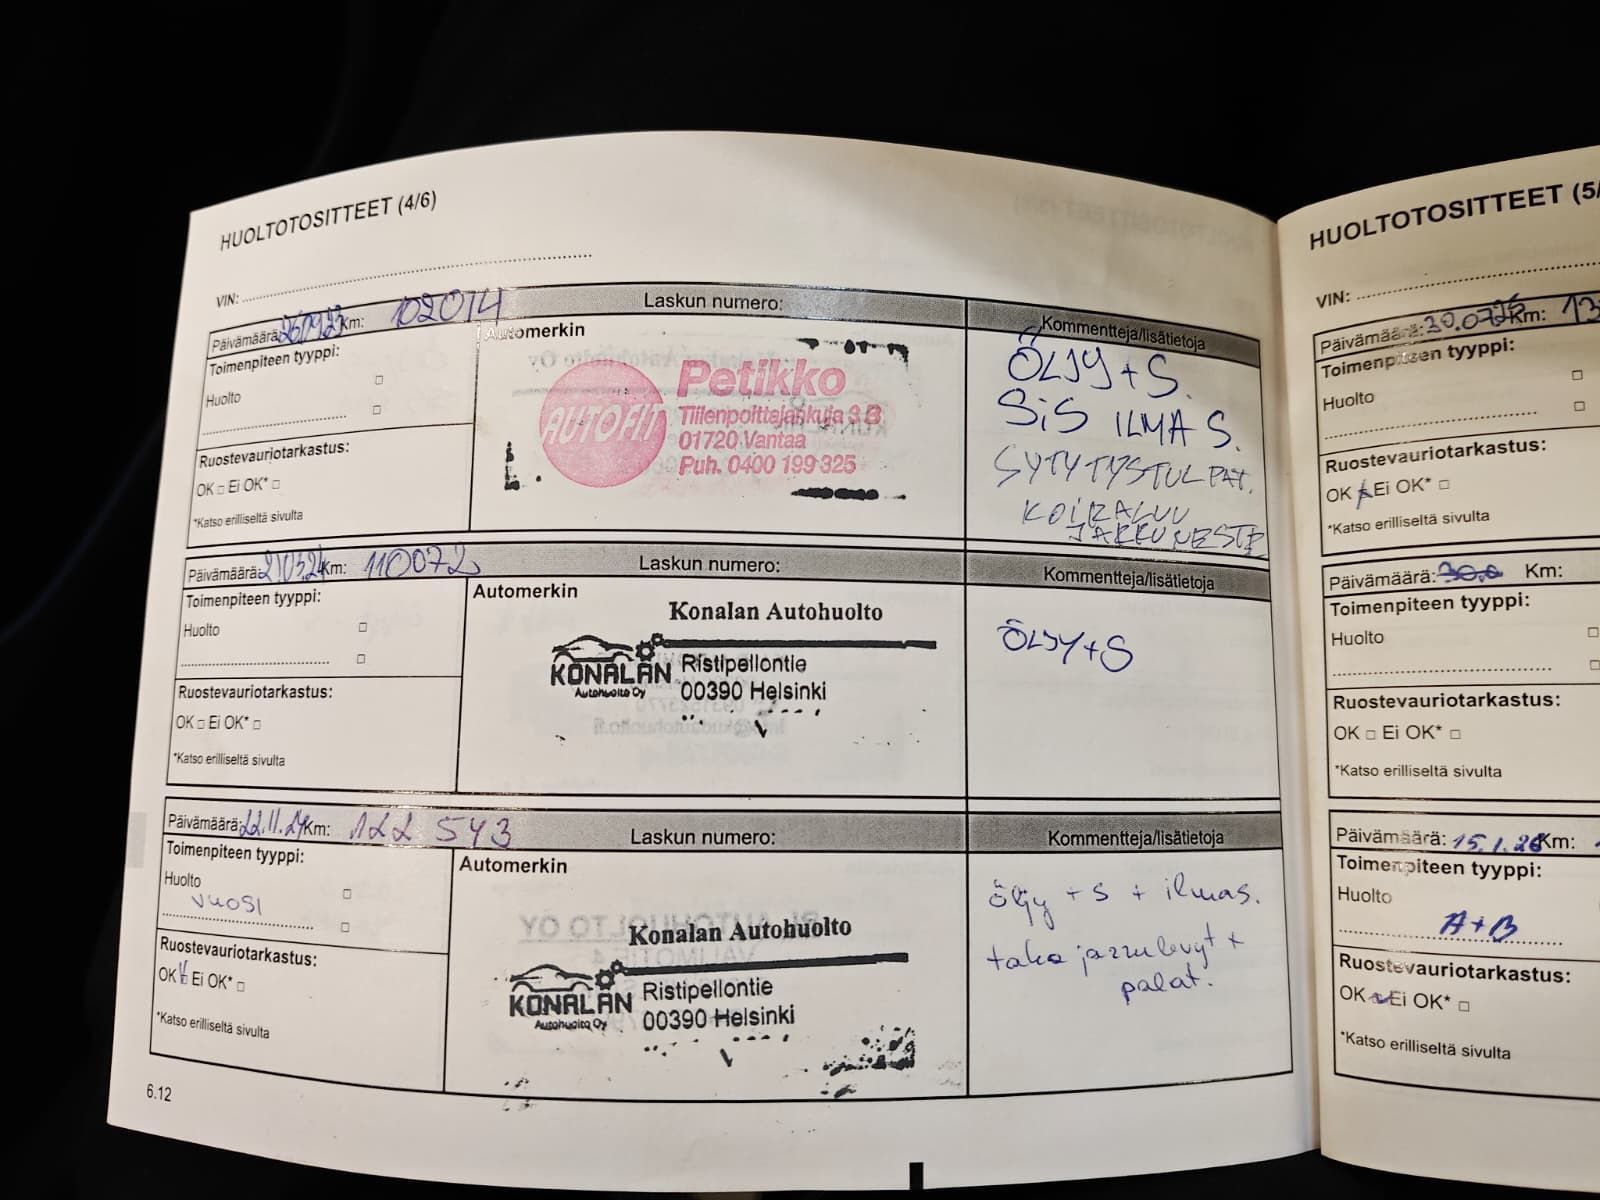 HUOLTOTOSITTEET (4/6)
VIN:
Päivämäärä: 260923 Km: 102014 Laskun numero:
Toimenpiteen tyyppi:
Huolto
Ruostevauriotarkastus:
OK □ Ei OK* □
*Katso erilliseltä sivulta
Automerkin
AUTOFIT
Petikko
Tiilenpolttajankuja 3 B
01720 Vantaa
Puh. 0400 199 325
Kommentteja/lisätietoja
ÖLJY + S.
SiS ILMA S.
SYTYTYSTULPAT.
KOIRALUU
JARRUNESTE
Päivämäärä: 210324 Km: 110072 Laskun numero:
Toimenpiteen tyyppi:
Huolto
Ruostevauriotarkastus:
OK □ Ei OK* □
*Katso erilliseltä sivulta
Automerkin
Konalan Autohuolto
KONALAN
Autohuolto Oy
Ristipellontie
00390 Helsinki
Kommentteja/lisätietoja
ÖLJY+S
Päivämäärä: 22.11.24 Km: 122 543 Laskun numero:
Toimenpiteen tyyppi:
Huolto
VUOSI
Ruostevauriotarkastus:
OK Ei OK* □
*Katso erilliseltä sivulta
Automerkin
Konalan Autohuolto
KONALAN
Autohuolto Oy
Ristipellontie
00390 Helsinki
Kommentteja/lisätietoja
öljy + s + ilmas.
taka jarrulevyt +
palat.
6.12
HUOLTOTOSITTEET (5/
VIN:
Päivämäärä: 30.0725 Km: 13
Toimenpiteen tyyppi:
Huolto
Ruostevauriotarkastus:
OK Ei OK* □
*Katso erilliseltä sivulta
Päivämäärä: Km:
Toimenpiteen tyyppi:
Huolto
Ruostevauriotarkastus:
OK □ Ei OK* □
*Katso erilliseltä sivulta
Päivämäärä: 15.1.26 Km:
Toimenpiteen tyyppi:
Huolto
A+B
Ruostevauriotarkastus:
OK Ei OK* □
*Katso erilliseltä sivulta